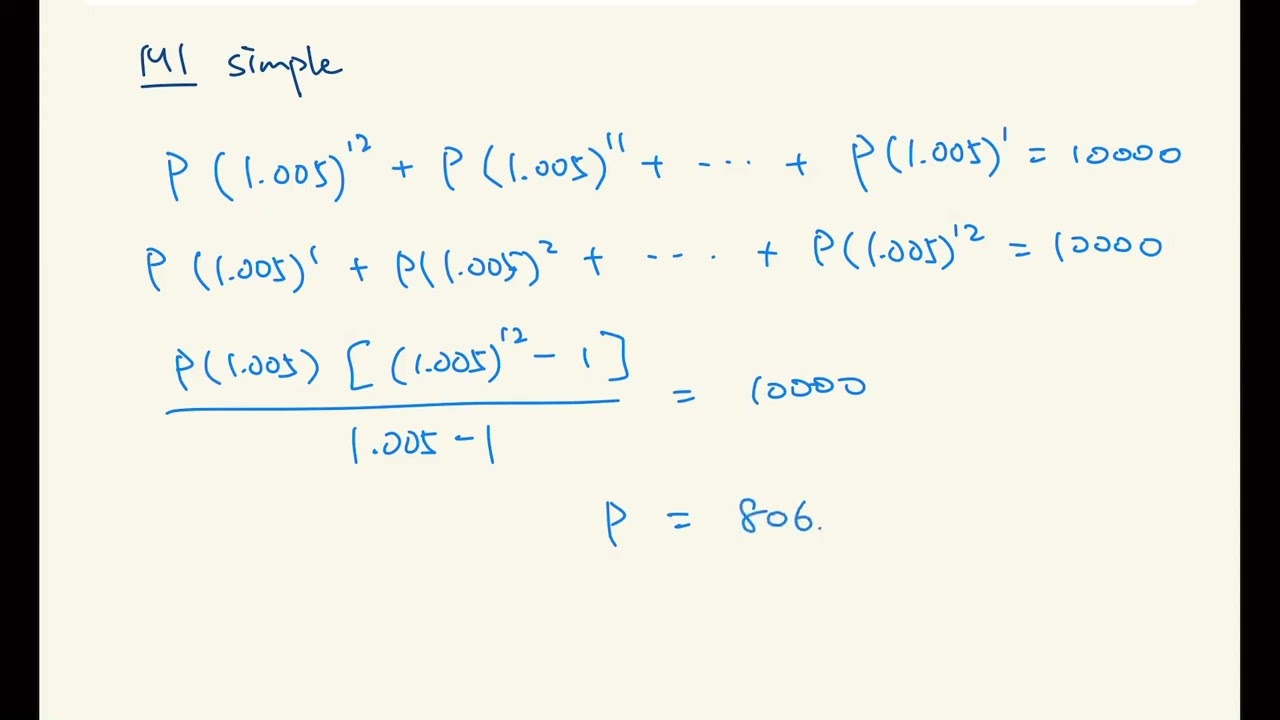 M1 simple
P (1.005)^12 + P (1.005)^11 + ... + P (1.005)^1 = 10000
P (1.005)^1 + P (1.005)^2 + ... + P (1.005)^12 = 10000
P (1.005) [ (1.005)^12 - 1 ]
= 10000
1.005 - 1
P = 806.